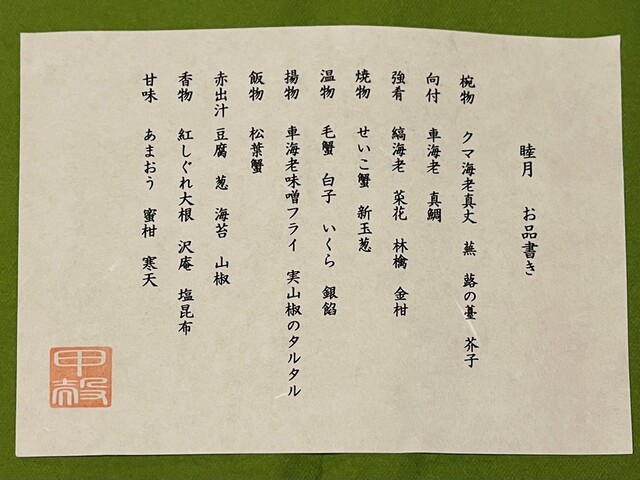 睦月　お品書き
椀物　クマ海老真丈　蕪　蕗の薹　芥子
向付　車海老　真鯛
強肴　縞海老　菜花　林檎　金柑
焼物　せいこ蟹　新玉葱
温物　毛蟹　白子　いくら　銀餡
揚物　車海老味噌フライ　実山椒のタルタル
飯物　松葉蟹
赤出汁　豆腐　葱　海苔　山椒
香物　紅しぐれ大根　沢庵　塩昆布
甘味　あまおう　蜜柑　寒天
甲殻